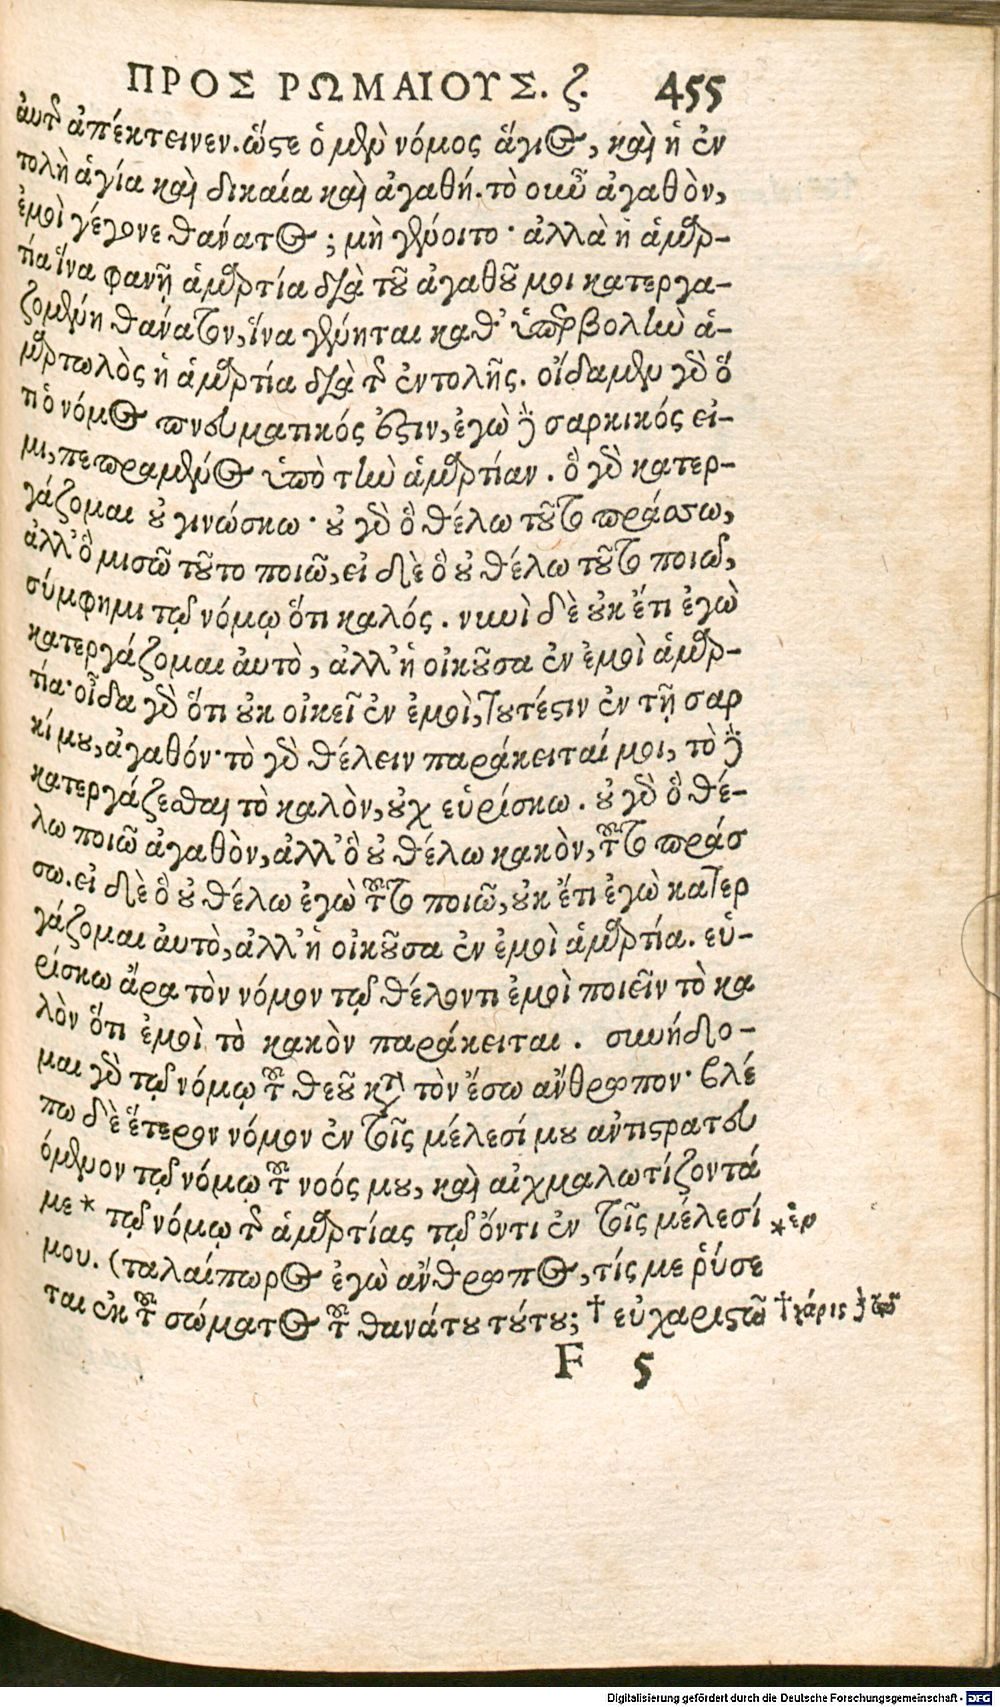 ΠΡΟΣ ΡΩΜΑΙΟΥΣ. ζ. 455
αὐτῆς ἀπέκτεινεν. ὥστε ὁ μὲν νόμος ἅγιος, καὶ ἡ ἐν
τολὴ ἁγία καὶ δικαία καὶ ἀγαθή. τὸ οὖν ἀγαθὸν,
ἐμοὶ γέγονε θάνατος; μὴ γένοιτο· ἀλλὰ ἡ ἁμαρ-
τία ἵνα φανῇ ἁμαρτία διὰ τοῦ ἀγαθοῦ μοι κατεργα-
ζομένη θάνατον, ἵνα γένηται καθ' ὑπερβολὴν ἁ-
μαρτωλὸς ἡ ἁμαρτία διὰ τῆς ἐντολῆς. οἴδαμεν γὰρ ὅ
τι ὁ νόμος πνευματικός ἐστιν, ἐγὼ δὲ σαρκικός εἰ-
μι, πεπραμένος ὑπὸ τὴν ἁμαρτίαν. ὃ γὰρ κατερ-
γάζομαι οὐ γινώσκω· οὐ γὰρ ὃ θέλω τοῦτο πράσσω,
ἀλλ' ὃ μισῶ τοῦτο ποιῶ, εἰ δὲ ὃ οὐ θέλω τοῦτο ποιῶ,
σύμφημι τῷ νόμῳ ὅτι καλός. νυνὶ δὲ οὐκ ἔτι ἐγὼ
κατεργάζομαι αὐτὸ, ἀλλ' ἡ οἰκοῦσα ἐν ἐμοὶ ἁμαρ-
τία· οἶδα γὰρ ὅτι οὐκ οἰκεῖ ἐν ἐμοὶ, τουτέστιν ἐν τῇ σαρ
κί μου, ἀγαθόν· τὸ γὰρ θέλειν παράκειταί μοι, τὸ δὲ
κατεργάζεσθαι τὸ καλὸν, οὐχ εὑρίσκω. οὐ γὰρ ὃ θέ-
λω ποιῶ ἀγαθὸν, ἀλλ' ὃ οὐ θέλω κακὸν, τοῦτο πράσ
σω. εἰ δὲ ὃ οὐ θέλω ἐγὼ τοῦτο ποιῶ, οὐκ ἔτι ἐγὼ κατερ
γάζομαι αὐτὸ, ἀλλ' ἡ οἰκοῦσα ἐν ἐμοὶ ἁμαρτία. εὑ-
ρίσκω ἄρα τὸν νόμον τῷ θέλοντι ἐμοὶ ποιεῖν τὸ κα
λὸν ὅτι ἐμοὶ τὸ κακὸν παράκειται. συνήδο-
μαι γὰρ τῷ νόμῳ τοῦ θεοῦ κατὰ τὸν ἔσω ἄνθρωπον· βλέ
πω δὲ ἕτερον νόμον ἐν τοῖς μέλεσί μου ἀντιστρατευ
όμενον τῷ νόμῳ τοῦ νοός μου, καὶ αἰχμαλωτίζοντά
με * τῷ νόμῳ τῆς ἁμαρτίας τῷ ὄντι ἐν τοῖς μέλεσί * ἐν
μου. (ταλαίπωρος ἐγὼ ἄνθρωπος, τίς με ῥύσε
ται ἐκ τοῦ σώματος τοῦ θανάτου τούτου; † εὐχαριστῶ † χάρις δὲ τῷ
F 5
Digitalisierung gefördert durch die Deutsche Forschungsgemeinschaft - DFG